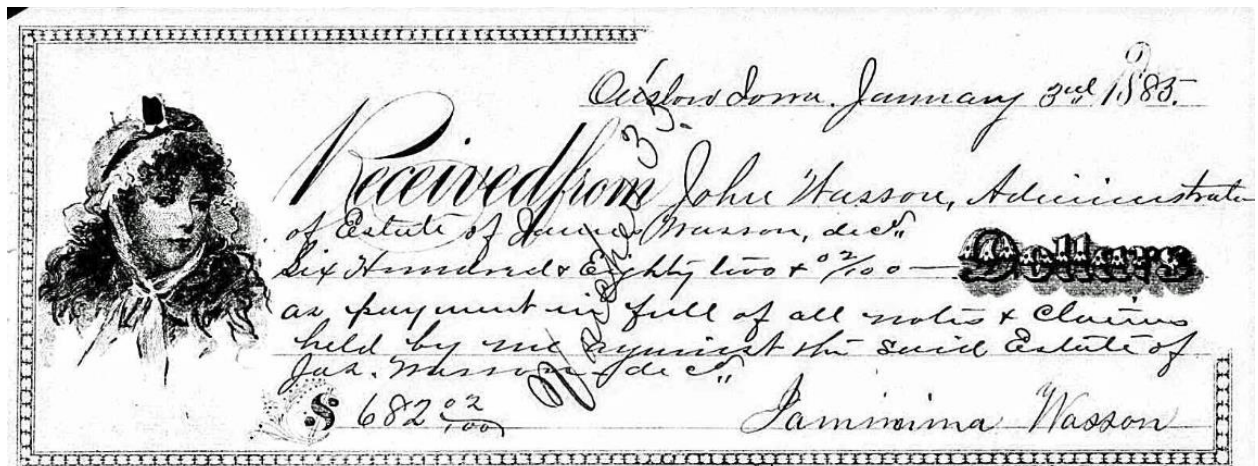 Onslow Iowa. January 3rd 1885.
Received from John Wasson, Administrator
of Estate of James Wasson, dec'd
Six Hundred & Eighty two & 02/100 — Dollars
as payment in full of all notes & Claims
held by me against the said Estate of
Jas. Wasson dec'd
$ 682 02/100
Jammima Wasson
Voucher 35.